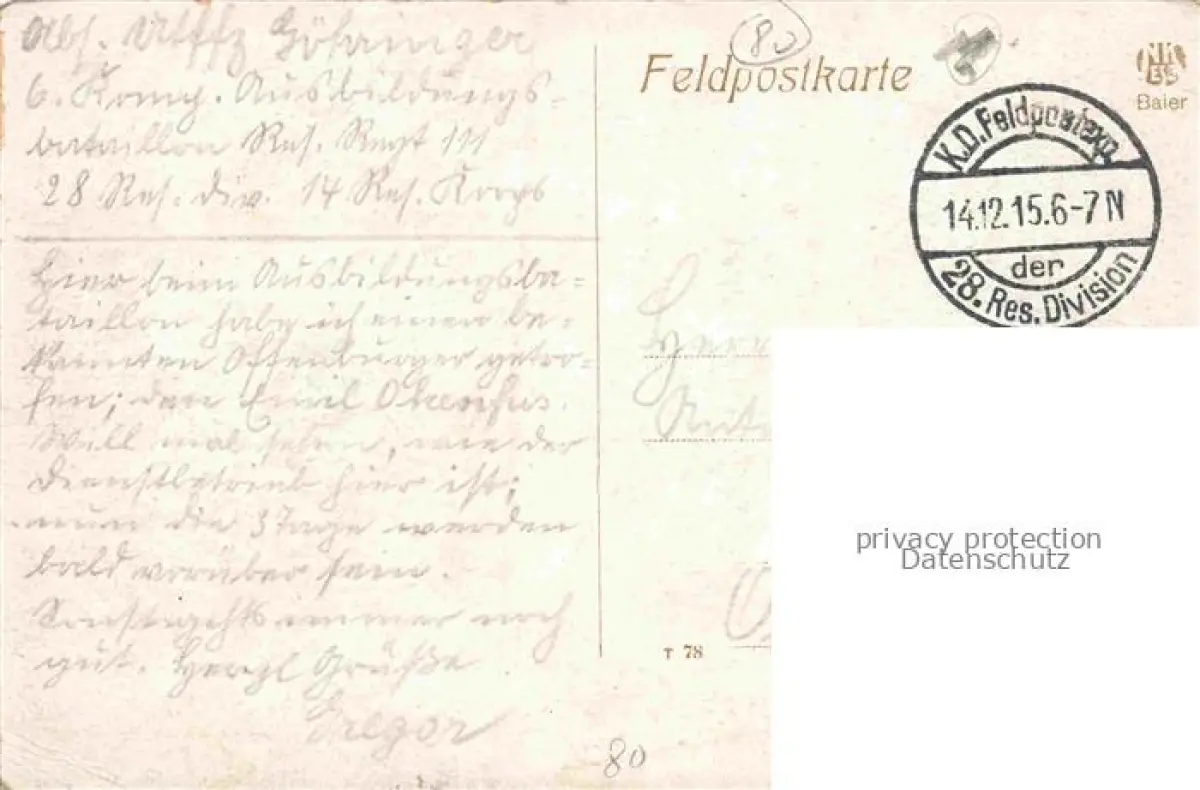 Abs. Utffz Göhringer
6. Komp. Ausbildungs-
bataillon Res. Regt 111
28 Res. Div. 14 Res. Korps
Hier beim Ausbildungsba-
taillon habe ich einen be-
kannten Offenburger getro-
fen; den Emil Okenfus.
Will mal sehen, wie der
Dienstbetrieb hier ist;
nun die 3 Tage werden
bald vorüber sein.
Sonst gehts immer noch
gut. Herzl Grüße
Gregor
80
80
Feldpostkarte
Baier
K.D.Feldpostexp.
14.12.15.6-7 N
der
28. Res. Division
Herr
T 78
privacy protection
Datenschutz